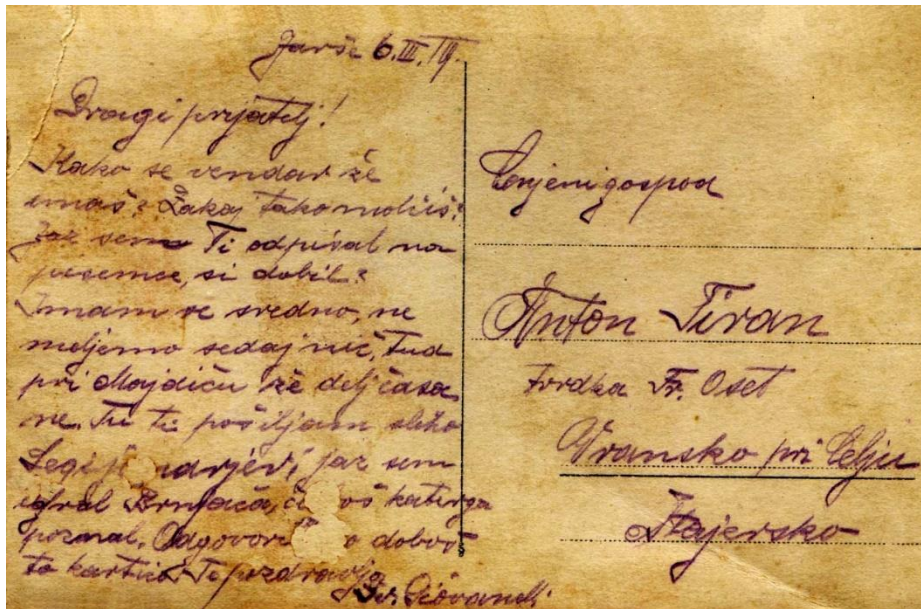 Jarše 6.III.19.
Dragi prijatelj!
Kako se vendar že
imaš? Zakaj tako molčiš?
Jaz sem Ti odpisal na
pisemce, si dobil?
Imam se sredno, ne
meljemo sedaj nič, tud
pri Majdiču že delj časa
ne. Tu ti pošiljam sliko
jaz sem
igral katerga
poznal. dobov
to kartico. Te pozdravlja
Cenjeni gospod
Anton Tiran
tvrdka Fr. Oset
Vransko pri Celju
Štajersko